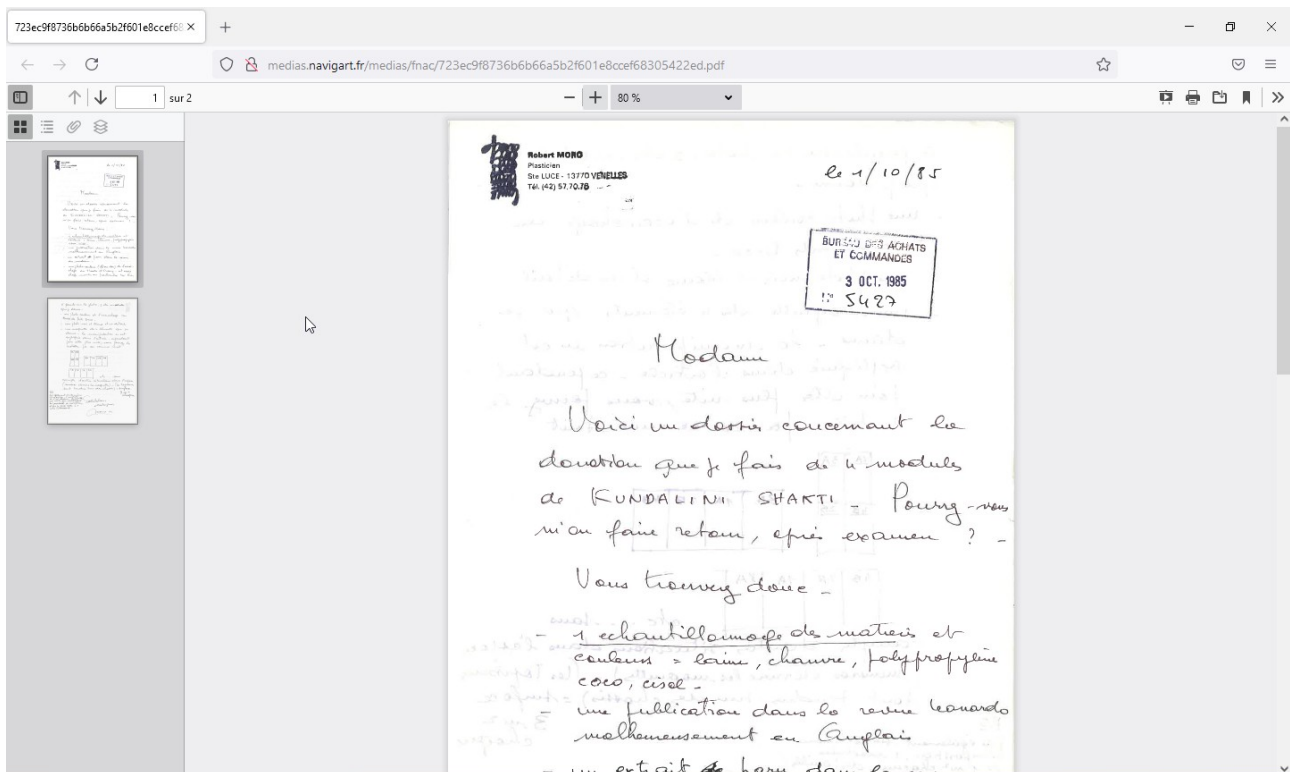 723ec9f8736b6b66a5b2f601e8ccef68
medias.navigart.fr/medias/fnac/723ec9f8736b6b66a5b2f601e8ccef68305422ed.pdf
1 sur 2
80 %
Robert MORO
Plasticien
Ste LUCE - 13770 VENELLES
Tél. (42) 57.70.76
le 1/10/85
BUREAU DES ACHATS
ET COMMANDES
3 OCT. 1985
N° 5427
Madame
Voici un dossier concernant la
donation que je fais de 4 modules
de KUNDALINI SHAKTI - Pouvez-vous
m'en faire retour, après examen ? -
Vous trouvez donc -
- 1 echantillonnage des matieres et
couleurs = laine, chanvre, polypropylène
coco, cisal -
- une publication dans la revue Leonardo
malheureusement en Anglais
- un extrait de paru dans